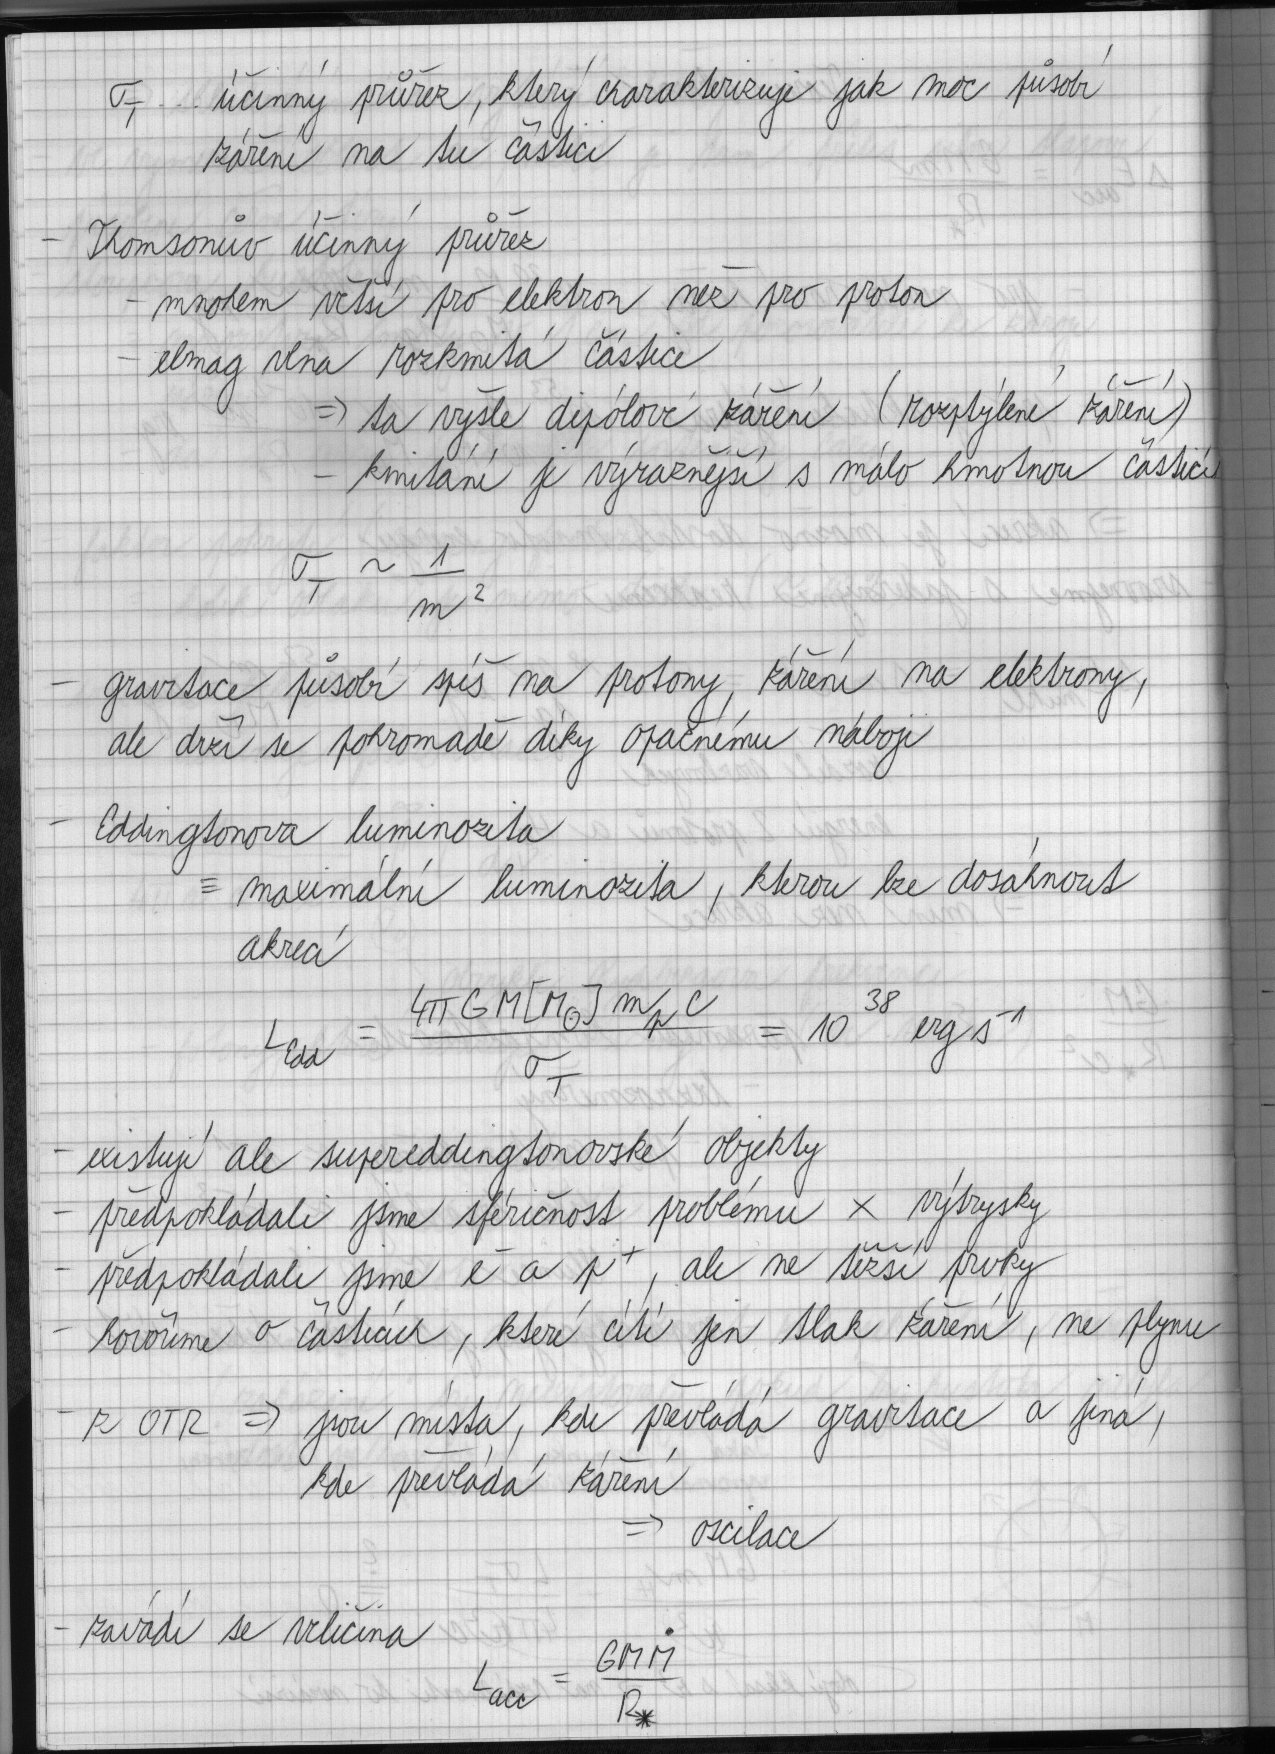 σ_T ... účinný průřez, který charakterizuje jak moc působí
záření na tu částici
- Thomsonův účinný průřez
- mnohem větší pro elektron než pro proton
- elmag vlna rozkmitá částice
⇒ ta vyšle dipólové záření (rozptýlené záření)
- kmitání je výraznější s málo hmotnou částicí
σ_T ~ 1/m²
- gravitace působí spíš na protony, záření na elektrony,
ale drží se pohromadě díky opačnému náboji
- Eddingtonova luminozita
≡ maximální luminozita, kterou lze dosáhnout
akrecí
L_Edd = 4πGM[M_⊙] m_p c / σ_T = 10^38 erg s^-1
- existují ale supereddingtonovské objekty
- předpokládali jsme sféričnost problému × výtrysky
- předpokládali jsme e⁻ a p⁺, ale ne těžší prvky
- hovoříme o částicích, které cítí jen tlak záření, ne plynu
- z OTR ⇒ jsou místa, kde převládá gravitace a jiná,
kde převládá záření
⇒ oscilace
- zavádí se veličina
L_acc = GMṀ / R_*